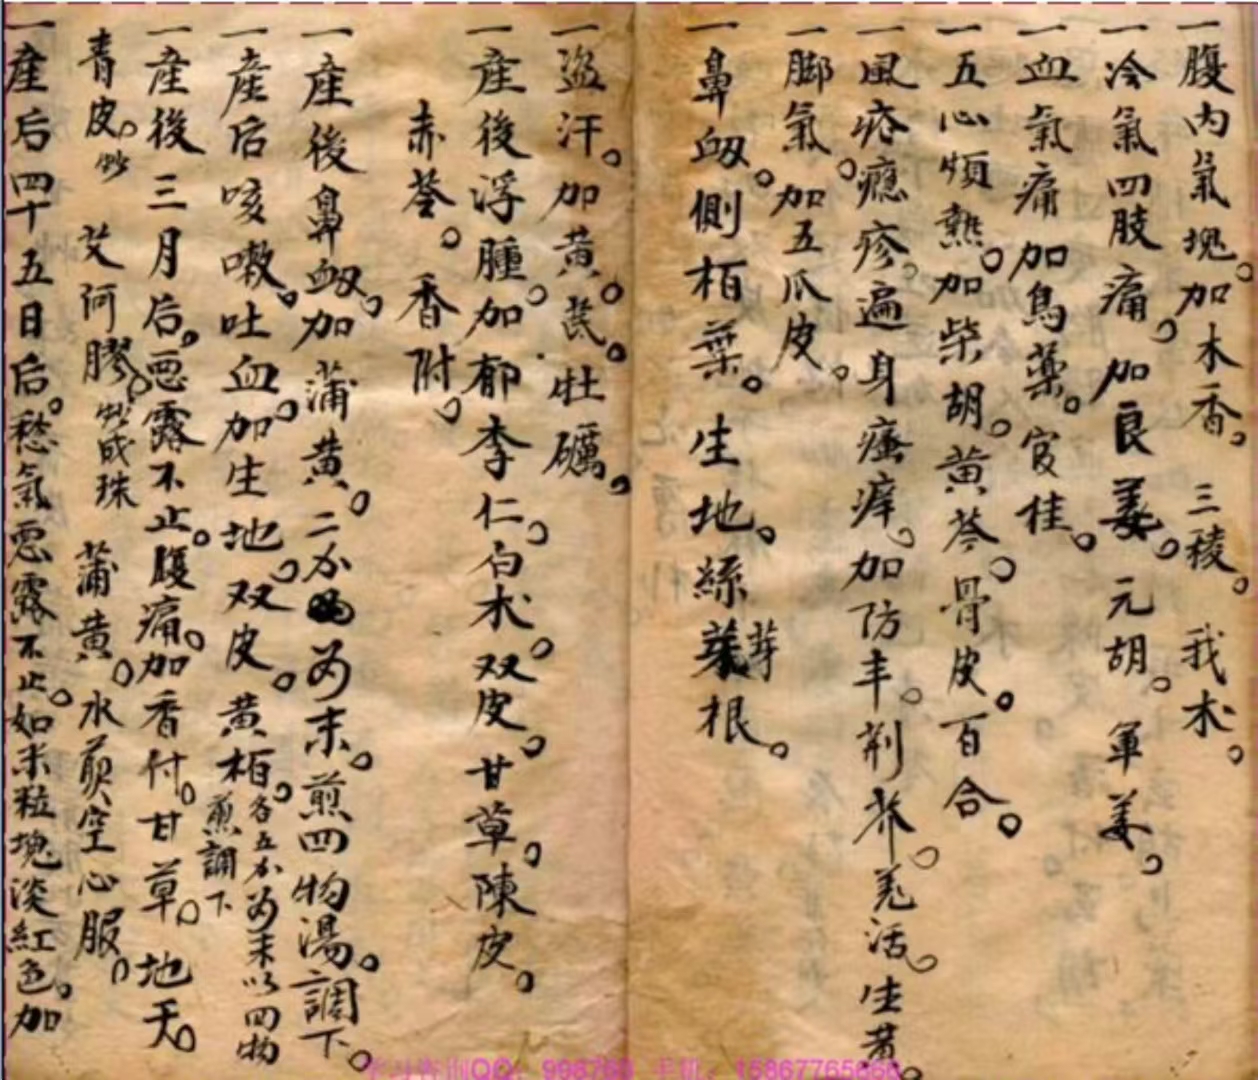 一腹内氣塊。加木香。三稜。我木。
一冷氣四肢痛。加良姜。元胡。軍姜。
一血氣痛加烏藥。官桂。
一五心煩熱。加柴胡。黄芩。骨皮。百合。
一風疹癮疹。遍身瘙痒。加防丰。荆芥。羌活。生黄。
一脚氣。加五爪皮。
一鼻衂。側栢葉。生地。絲茅根。
一盗汗。加黄。芪。牡礪。
一産後浮腫。加郁李仁。白术。双皮。甘草。陳皮。
赤苓。香附。
一産後鼻衂。加蒲黄。二分為末。煎四物湯。調下。
一産后咳嗽。吐血。加生地。双皮。黄栢。各五分為末以四物
煎調下
一産後三月后。悪露不止。腹痛。加香付。甘草。地天。
青皮。炒 艾 阿膠。炒成珠 蒲黄。水煎空心服。
一産后四十五日后。愁氣悪露不止。如米粒塊淡紅色。加
QQ：998783 手机：15867765868